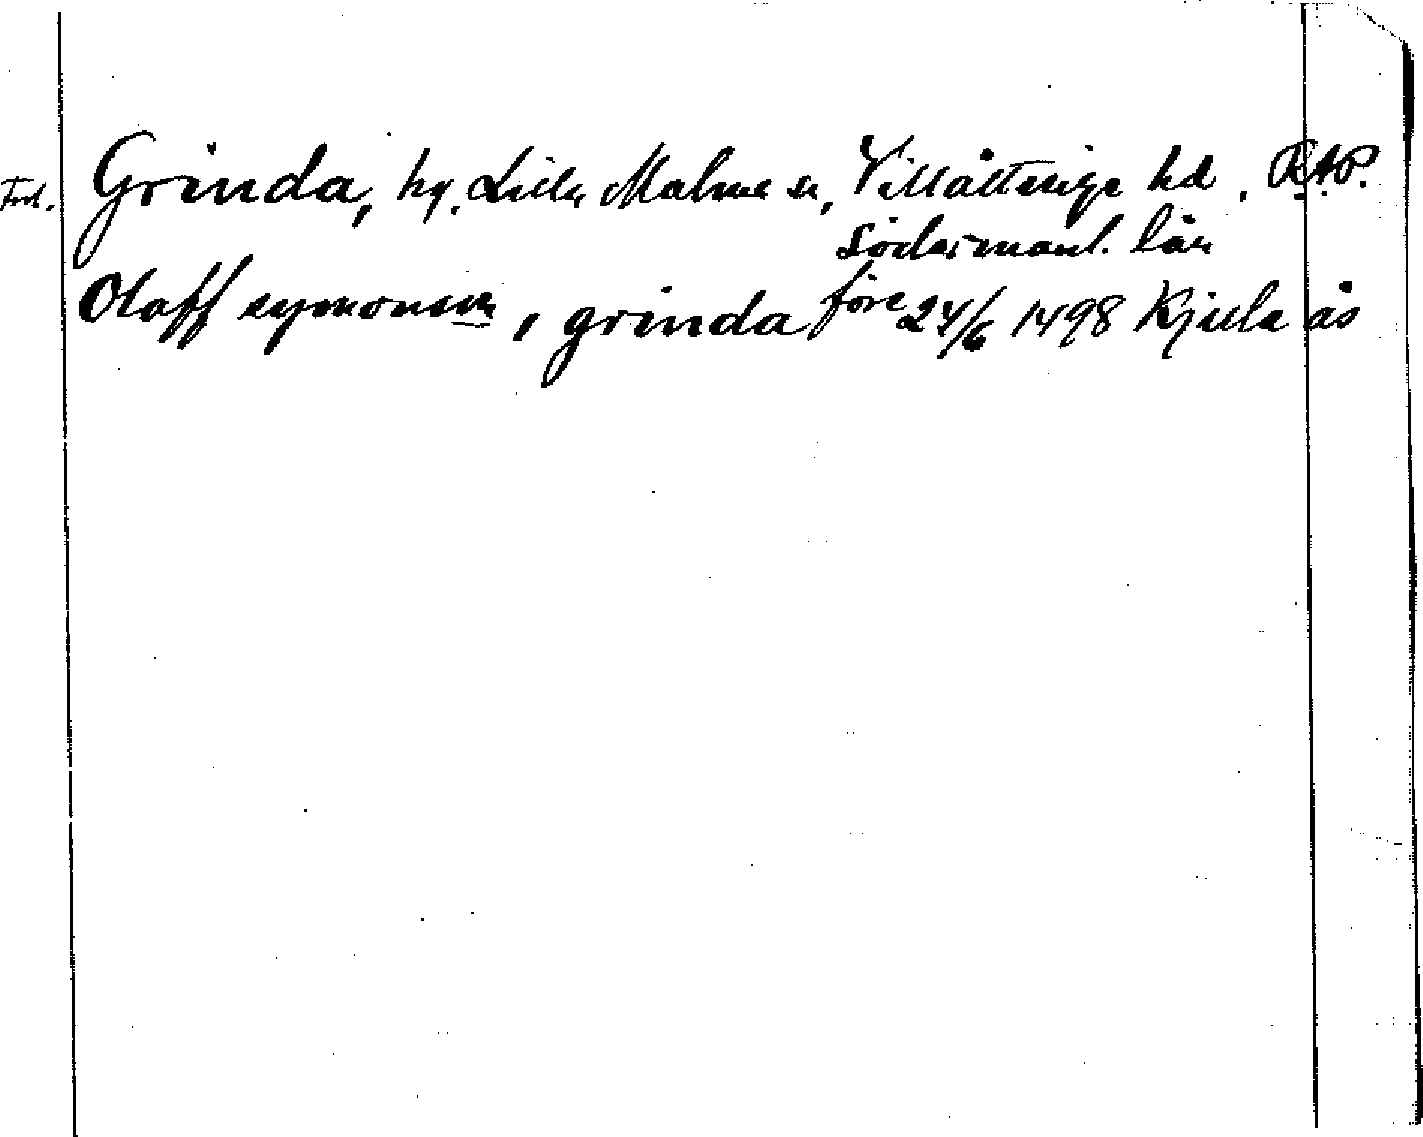 Grinda, by, Lilla Malms sn, Villåttinge hd, RAP.
Södermanl. län
Olaff symonsen, grinda före 24/6 1498 Kjula ås